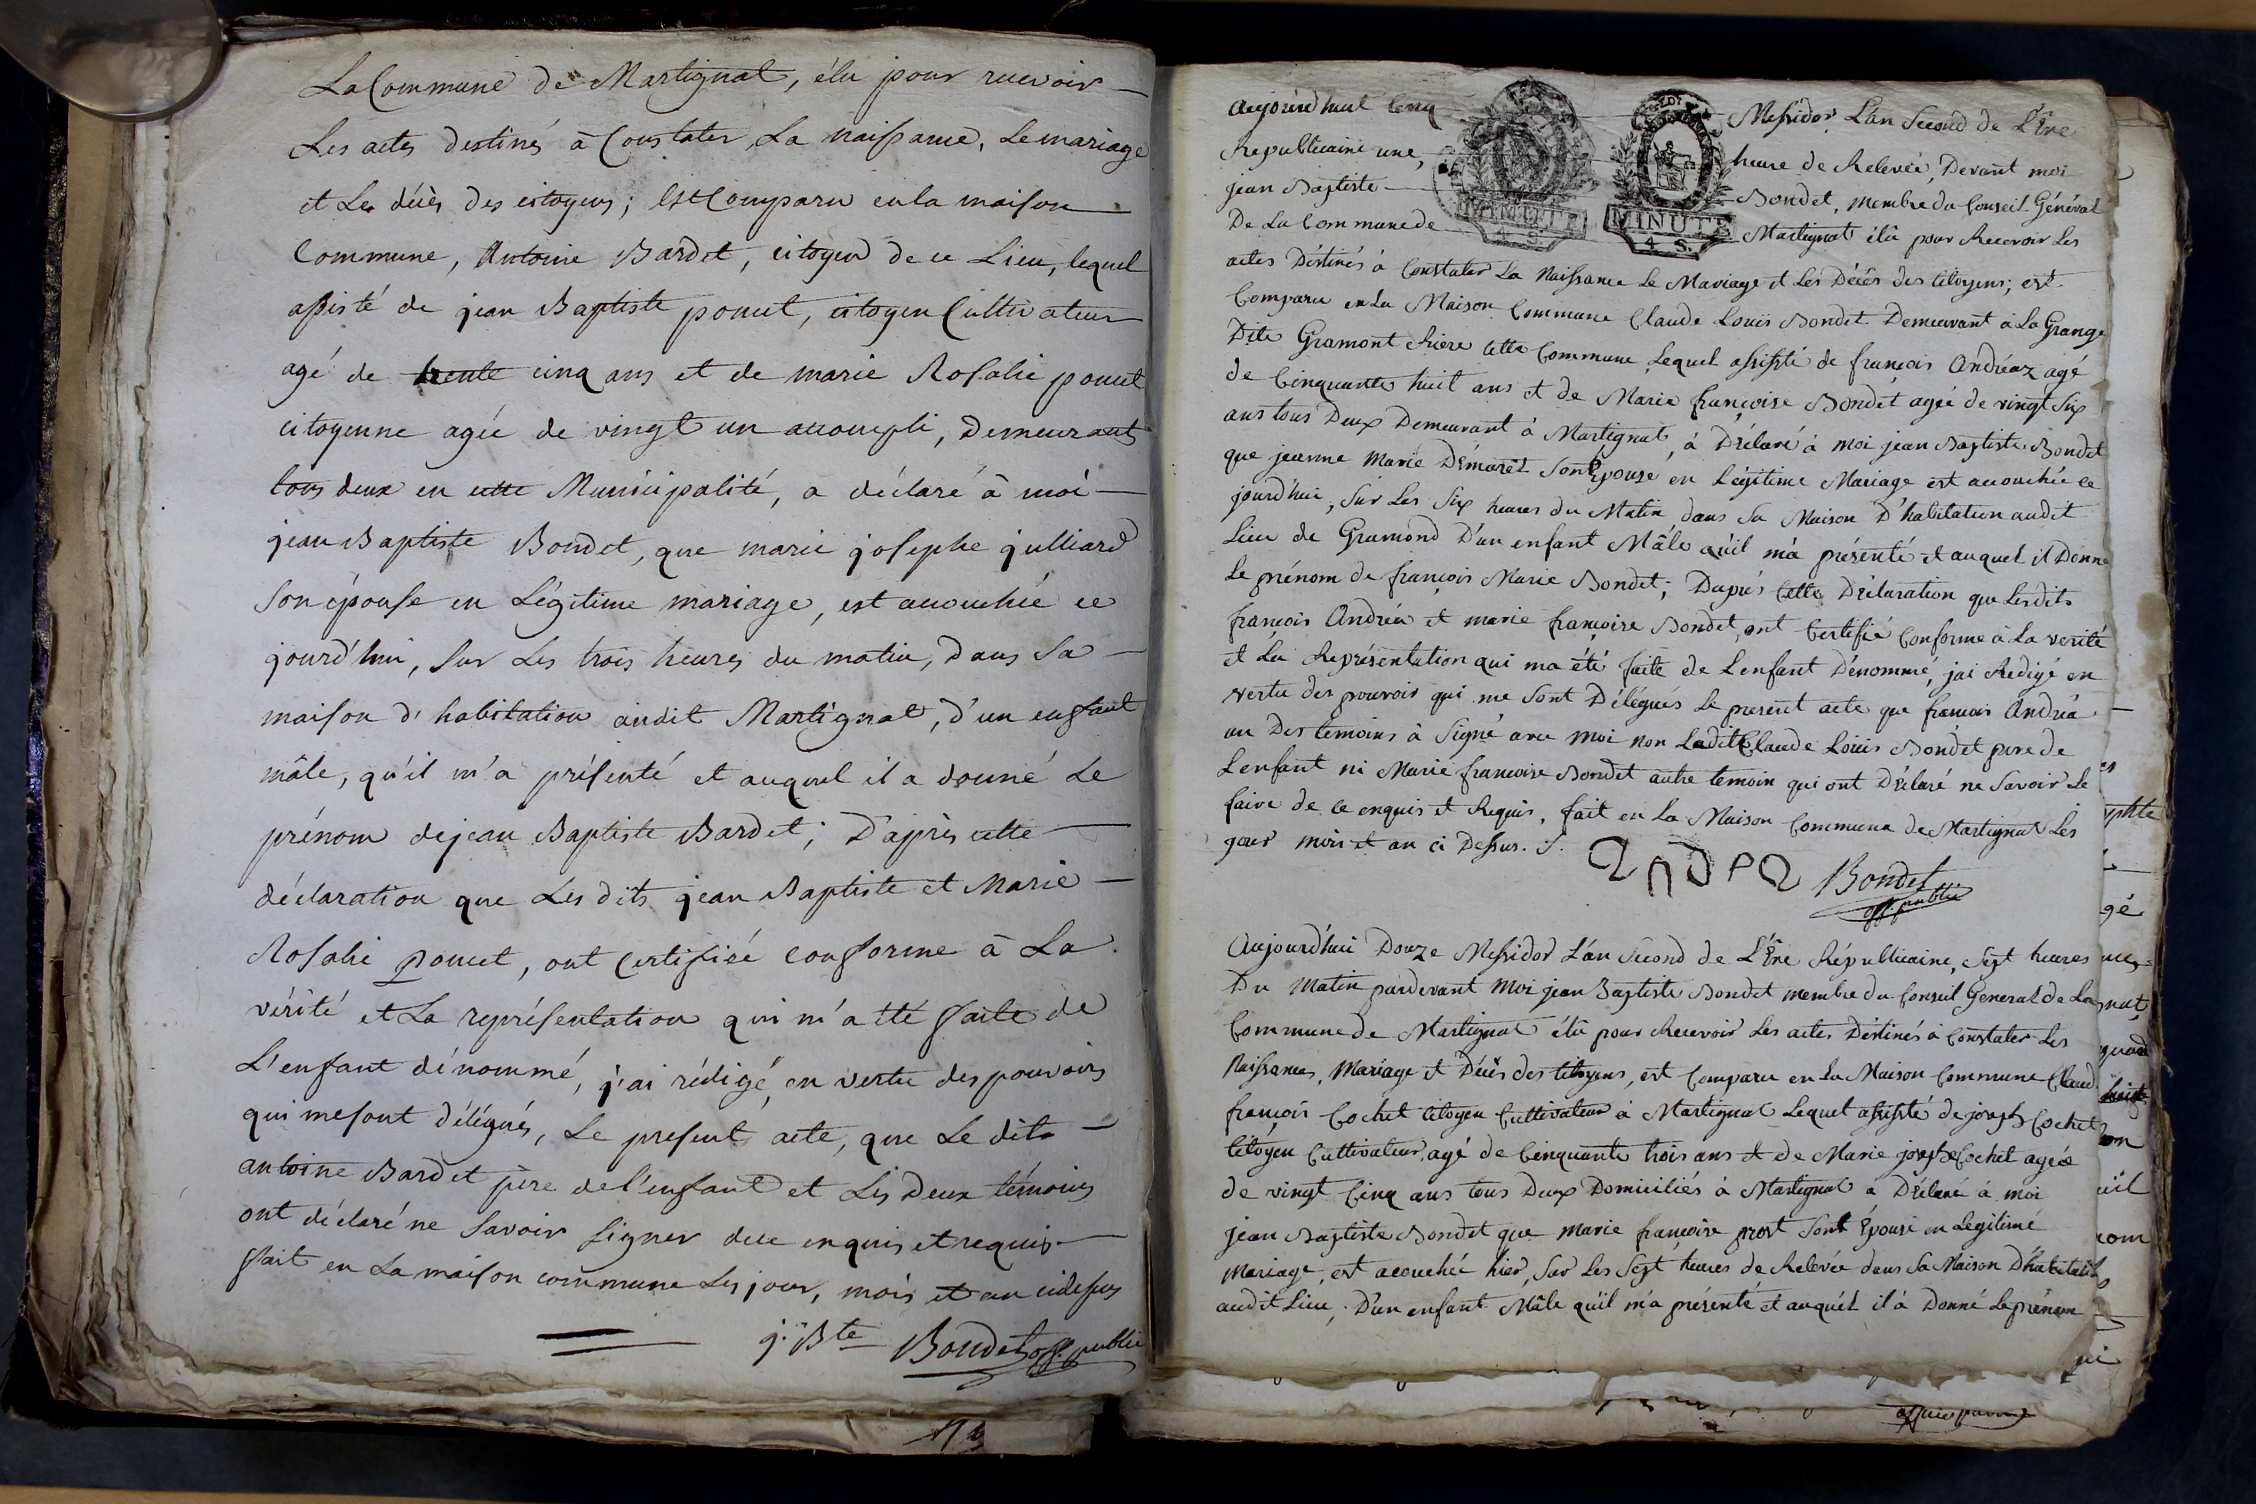 La Commune de Martignat, élu pour recevoir
Les actes destinés à Constater La naissance, Le mariage
et Les décès des citoyens; Est Comparu en la maison
Commune, Antoine Bardet, citoyen de ce Lieu, lequel
assisté de jean Baptiste poncet, citoyen Cultivateur
agé de trente cinq ans et de marie Rosalie poncet
citoyenne agée de vingt un accompli, Demeurants
tous deux en cette Municipalité, a déclaré à moi
jean Baptiste Bondet, que marie josephe julliard
Son épouse en Légitime mariage, est accouchée ce
jourd'hui, Sur Les trois heures du matin, dans Sa
maison d'habitation audit Martignat, d'un enfant
mâle, qu'il m'a présenté et auquel il a donné Le
prénom de jean Baptiste Bardet; D'après cette
déclaration que Les dits jean Baptiste et Marie
Rosalie poncet, ont Certifiée conforme à La
vérité et La représentation qui m'a été faite de
L'enfant dénommé, j'ai rédigé, en vertu des pouvoirs
qui me sont délégués, Le present acte, que Le dit
antoine Bardet père de l'enfant et Les Deux témoins
ont déclaré ne Savoir signer de ce enquis et requis
fait en La maison commune Les jour, mois et an cidessus
j. Bte Bondet off. public
Aujourd'huit Cinq Messidor L'an Second de L'Ere
Republicaine une, heure de Relevée, Devant moi
jean Baptiste Bondet, membre du Conseil Général
De La Commune de Martignat élû pour Recevoir Les
MINUTE
4 S.
actes Déstinés à Constater La Naissance Le Mariage et Les Décès des Citoyens; est
Comparu en La Maison Commune Claude Louis Bondet Demeurant à La Grange
Dite Gramont Riere cette Commune Lequel assisté de françois Andréaz agé
de Cinquante huit ans et de Marie françoise Bondet agée de vingt Six
ans tous Deux Demeurant à Martignat, à Déclaré à moi jean Baptiste Bondet
que jeanne Marie Démaret Son Epouse en Légitime Mariage est accouchée ce
jourd'hui, Sur Les Six heures du Matin dans Sa Maison D'habitation audit
Lieu de Gramond D'un enfant Mâle qu'il m'à présenté et auquel il Donne
Le prénom de françois Marie Bondet; Daprés Cette Déclaration que Lesdits
françois Andréa et marie françoise Bondet, ont Certifié Conforme à La verité
et La Représentation qui ma été faite de Lenfant Dénommé, jai Redigé en
vertu des pouvoir qui me Sont Délégués Le present acte que françois Andréa
un Des temoins à Signé avec moi non Ledit Claude Louis Bondet pere de
Lenfant ni Marie françoise Bondet autre temoin qui ont Déclaré ne Savoir Le
faire de ce enquis et Requis, fait en La Maison Commune de Martignat Les
jour mois et an ci Dessus.
Bondet
off. public
Aujourd'hui Douze Messidor L'an Second de L'Ere Républicaine, Sept heures
Du Matin pardevant Moi jean Baptiste Bondet membre du Conseil General de La
Commune de Martignat élû pour Recevoir Les actes Déstinés à Constater Les
Naissances, Mariage et Décès des Citoyens, est Comparu en La Maison Commune Claude
françois Cochet Citoyen Cultivateur à Martignat Lequel assisté de joseph Cochet
Citoyen Cultivateur, agé de Cinquante trois ans et de Marie josephe Cochet agée
de vingt Cinq ans tous Deux Domiciliés à Martignat a Déclaré à moi
jean Baptiste Bondet que marie françoise prost Son Epouse en Légitime
Mariage, est acouchée hier, Sur Les Sept heures de Relevée dans Sa Maison D'habitation
audit Lieu; D'un enfant Mâle qu'il m'a présenté et auquél il à Donné Le prénom